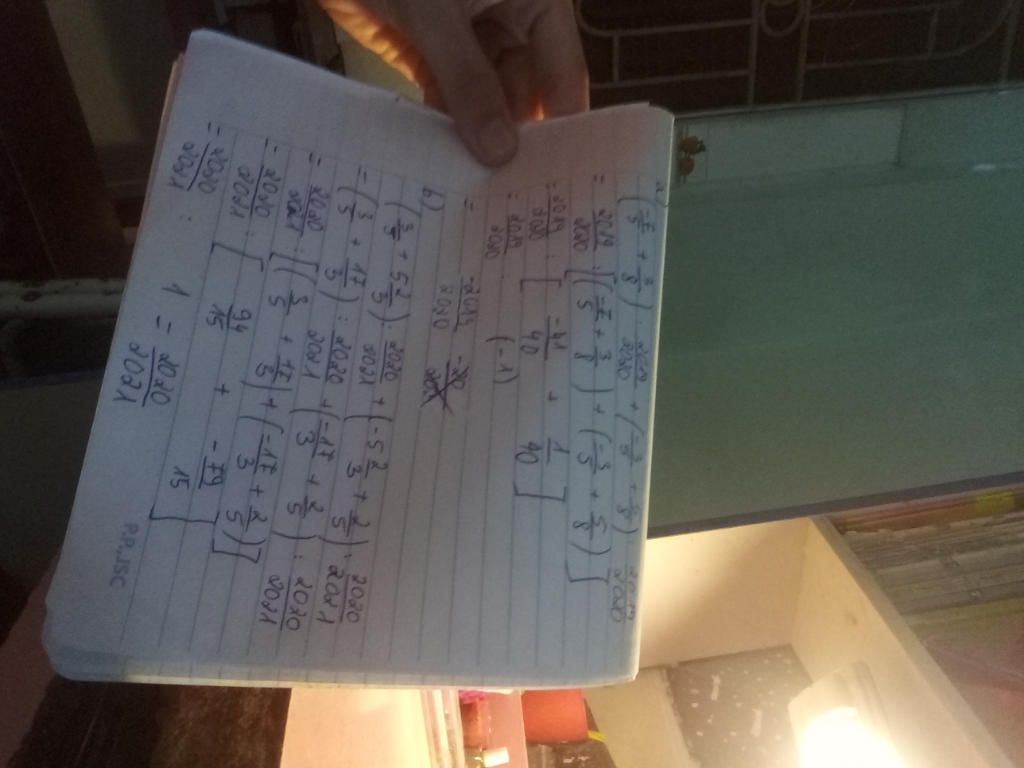 a)
(-7/5 + 3/8) : 2019/2020 + (-3/5 + 5/8) : 2019/2020
= 2019/2020 : [(-7/5 + 3/8) + (-3/5 + 5/8)]
= 2019/2020 : [ -41/40 + 1/40 ]
= 2019/2020 : (-1)
= -2019/2020
b)
(3/5 + 5 2/3) : 2020/2021 + (-5 2/3 + 2/5) : 2020/2021
= (3/5 + 17/3) : 2020/2021 + (-17/3 + 2/5) : 2020/2021
= 2020/2021 : [(3/5 + 17/3) + (-17/3 + 2/5)]
= 2020/2021 : [ 94/15 + -79/15 ]
= 2020/2021 : 1 = 2020/2021
P.P.,JSC